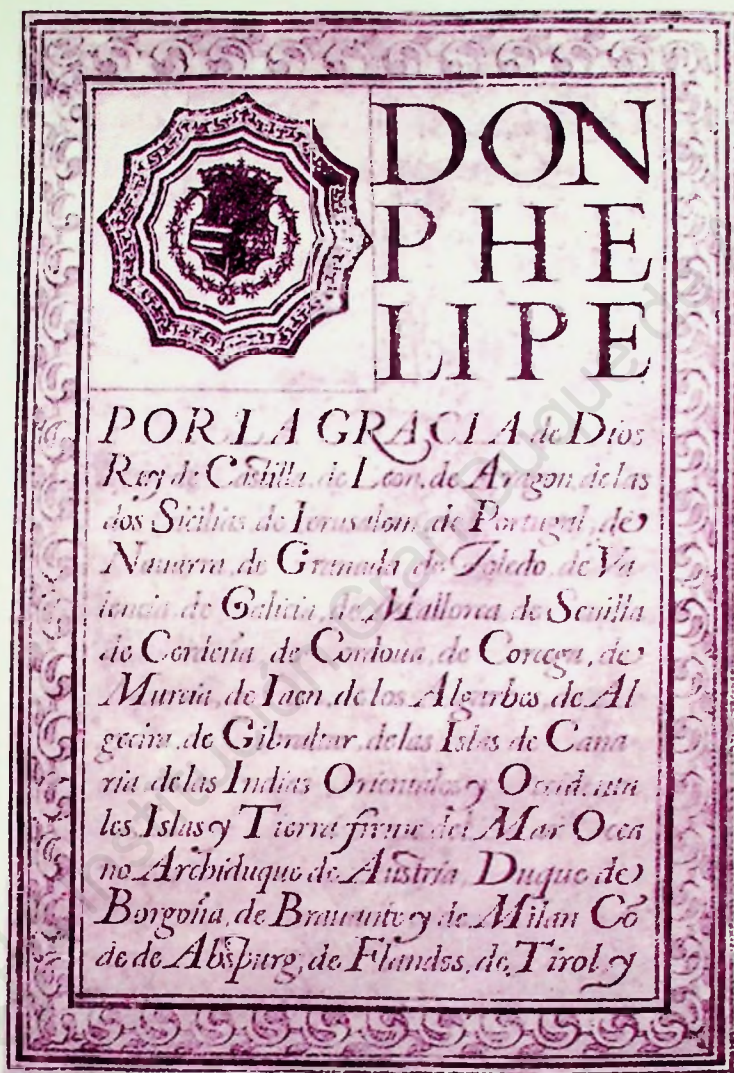 DON
PHE
LIPE
POR LA GRACIA de Dios
Rey de Castilla, de Leon, de Aragon, delas
dos Sicilias de Ierusalem, de Portugal, de
Nauarra, de Granada de Toledo, de Va
lencia, de Galicia, de Mallorca de Seuilla
de Cerdeña de Cordoua, de Corcega, de
Murcia, de Iaen, de los Algarbes, de Al
gecira, de Gibraltar, delas Islas de Cana
ria delas Indias Orientales y Occidenta
les Islas y Tierra firme del Mar Ocea
no Archiduque de Austria, Duque de
Borgoña, de Brauante y de Milan Cõ
de de Abspurg, de Flandes, de, Tirol y